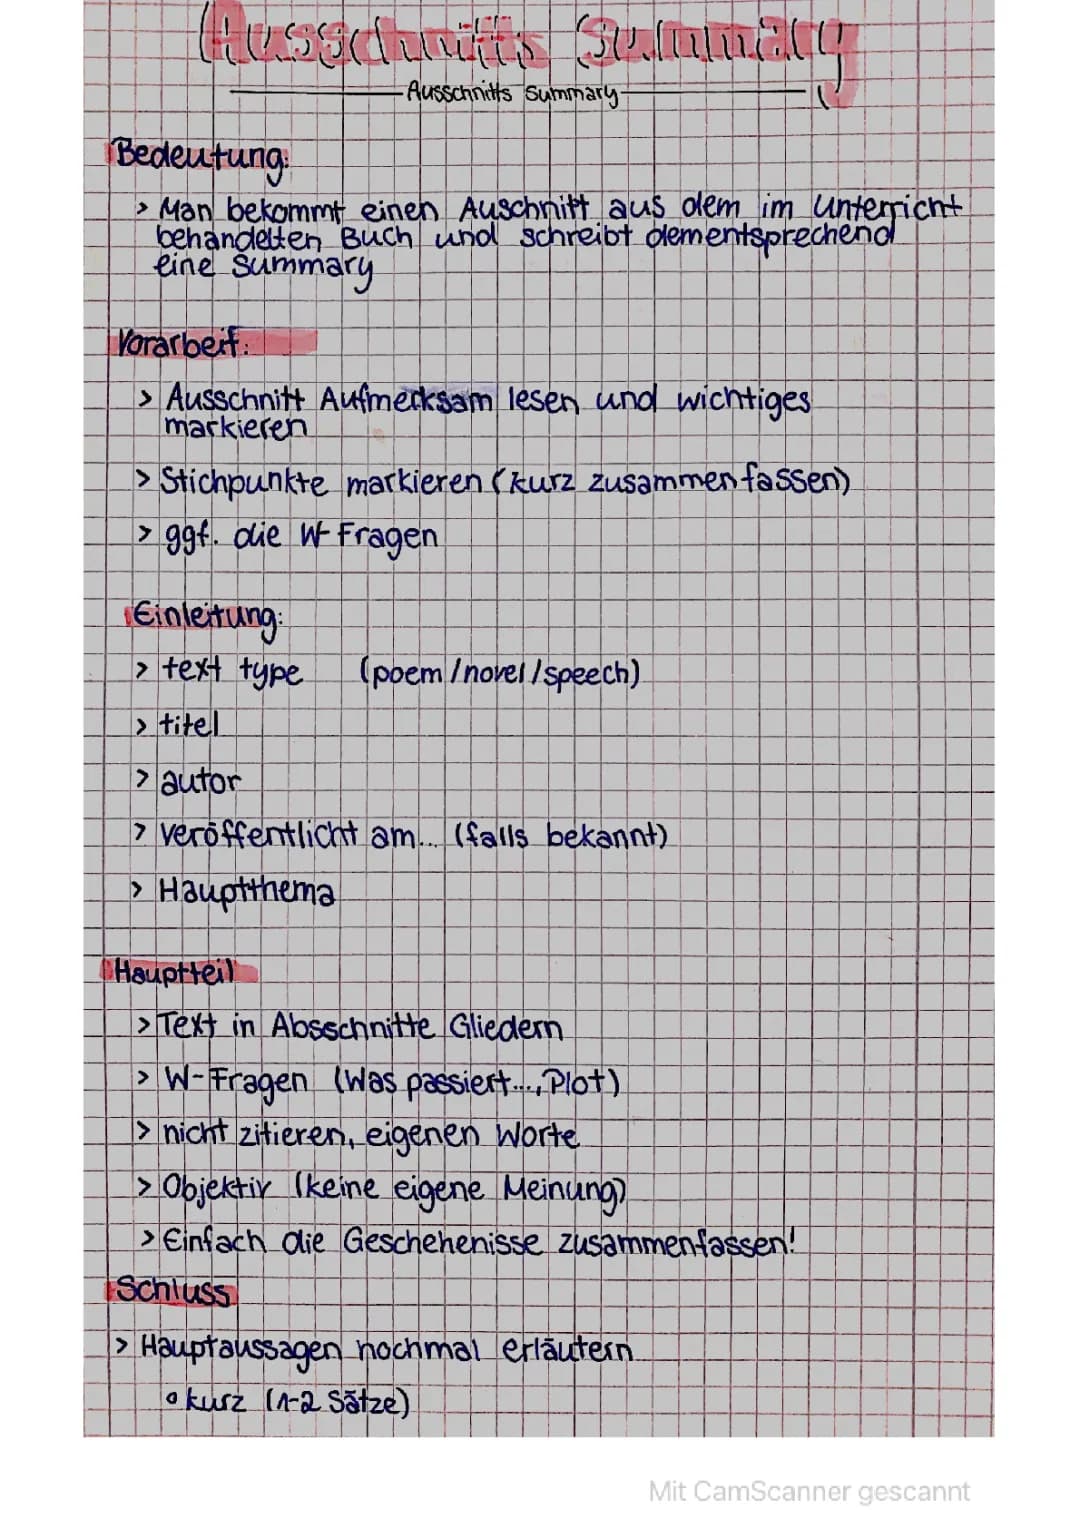 Ausschnitts Summary
Ausschnitts Summary
Bedeutung:
> Man bekommt einen Auschnitt aus dem im Unterricht
behandelten Buch und schreibt dementsprechend
eine Summary
Vorarbeit:
> Ausschnitt Aufmerksam lesen und wichtiges
markieren
> Stichpunkte markieren (kurz zusammenfassen)
> ggf. die W-Fragen
Einleitung:
> text type (poem/novel/speech)
> titel
> autor
> veröffentlicht am... (falls bekannt)
> Hauptthema
Hauptteil
> Text in Absschnitte Gliedern
> W-Fragen (Was passiert..., Plot)
> nicht zitieren, eigenen Worte
> Objektiv (keine eigene Meinung)
> Einfach die Geschehenisse zusammenfassen!
Schluss
> Hauptaussagen nochmal erläutern
° kurz (1-2 Sätze)
Mit CamScanner gescannt